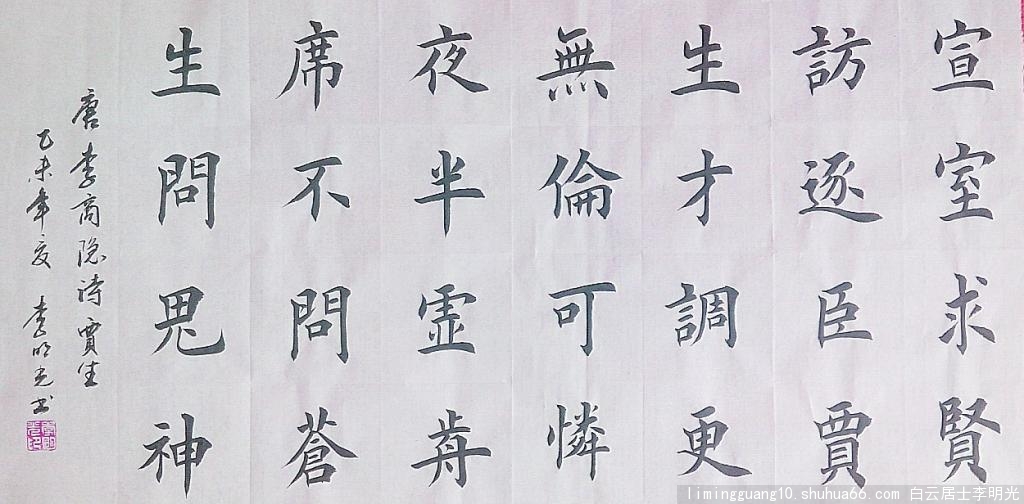 宣室求賢
訪逐臣賈
生才調更
無倫可憐
夜半虚歬
席不問蒼
生問鬼神
唐李商隐诗賈生
乙未年夏 李明光书
limingguang10.shuhua66.com 白云居士李明光